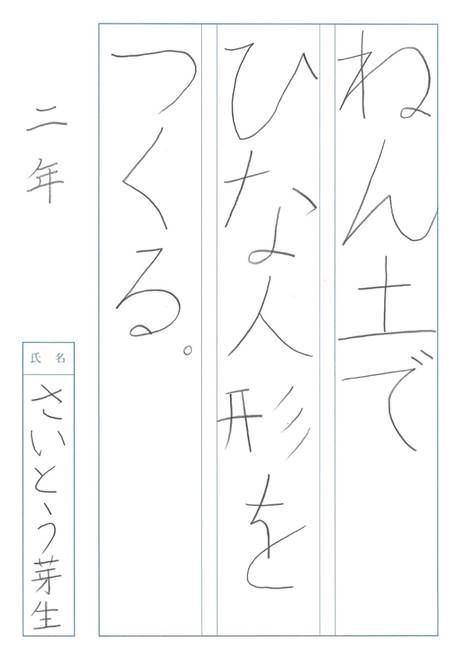 ねん土で
ひな人形を
つくる。
二年
氏名
さいとう芽生